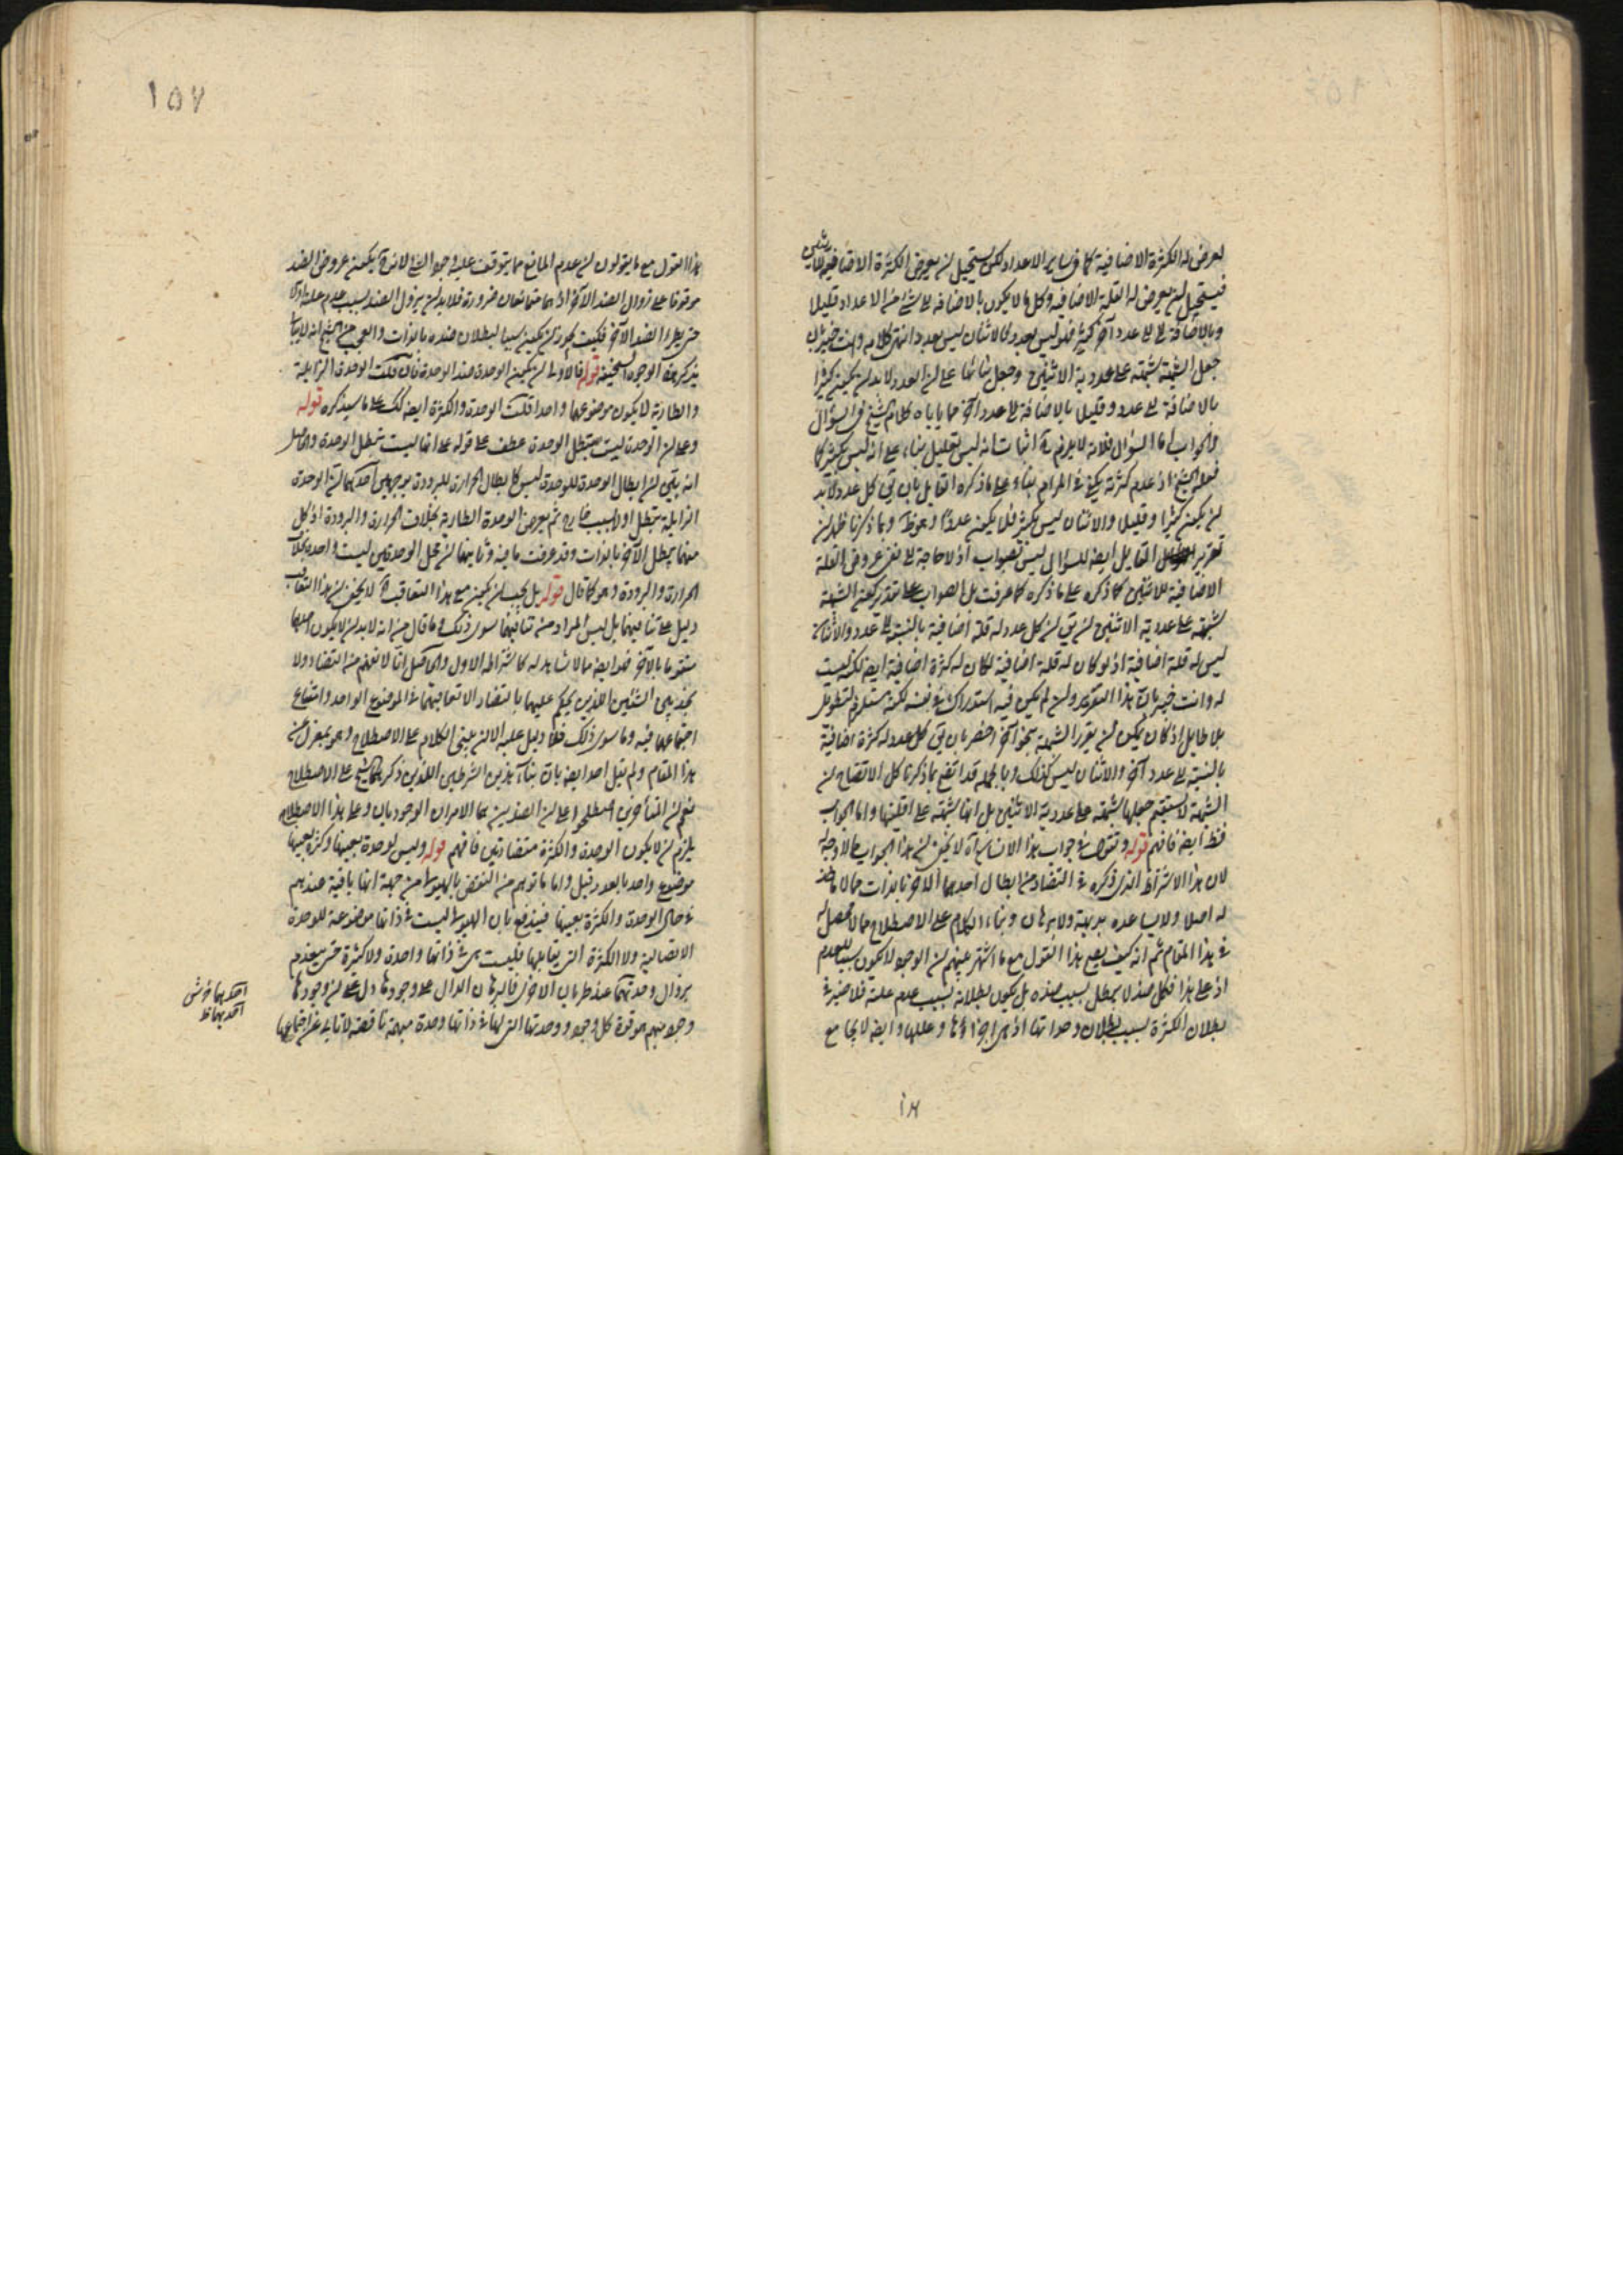 يعرض له الكثرة الاضافية كما في ساير الاعداد لكن يستحيل ان يعرض الكثرة الاضافية للاثنين
فيستحيل ان يعرض له القلة الاضافية وكل ما لا يكون بالاضافة الى شئ من الاعداد قليلا
وبالاضافة الى عدد آخر كثيرا فليس بعدد فالاثنان ليس بعدد انتهى كلامه وانت خبير بان
جعل الشبهة شبهة على عددية الاثنين وجعل بنائها على ان العدد لا بد ان يكون كثيرا
بالاضافة الى عدد وقليلا بالاضافة الى عدد آخر مما ياباه كلام الشيخ في السؤال
والجواب اما السؤال فلانه لا يلزم اثبات انه ليس بقليل بناء على انه ليس بكثير كما
فعله الشيخ اذ عدم كثرته يكفي في المرام بناء على ما ذكره القايل بان يق كل عدد لا بد
ان يكون كثيرا وقليلا والاثنان ليس بكثير فلا يكون عددا وهو ظ وبما ذكرنا ظهر ان
تقرير القايل ايضا للسؤال ليس بصواب اذ لا حاجة الى نفي عروض القلة
الاضافية للاثنين كما ذكره على ما ذكره كما عرفت بل الصواب على تقدير كون الشبهة
شبهة على عددية الاثنين ان يق ان كل عدد له قلة اضافية بالنسبة الى عدد والاثنان
ليس له قلة اضافية اذ لو كان له قلة اضافية لكان له كثرة اضافية ايضا لكن ليست
له وانت خبير بان هذا التقرير وان لم يكن فيه استدراك في نفسه لكنه مستلزم لتطويل
بلا طايل اذ كان يمكن ان يقرر الشبهة بنحو آخر اخصر بان يق كل عدد له كثرة اضافية
بالنسبة الى عدد آخر والاثنان ليس كذلك وبالجملة قد اتضح بما ذكرنا كل الاتضاح ان
الشبهة لا يستقيم جعلها شبهة على عددية الاثنين بل انها شبهة على اقليتها واما الجواب
فظ ايضا فافهم قوله ونقول في جواب هذا الانسان آه لا يخفى ان هذا الجواب لا وجه له
لان هذا الاشتراط الذي ذكره في التضاد من ابطال احدهما الآخر بالذات مما لا ماخذ
له اصلا ولا يساعده بديهة ولا برهان وبناء الكلام على الاصطلاح مما لا محصل له
في هذا المقام ثم انه كيف يصح هذا القول مع ما اشتهر بينهم ان الوجود لا يكون سببا للعدم
اذ على هذا فكل ضد لا يبطل بسبب ضده بل يكون بطلانه بسبب عدم علته فلا ضير في
بطلان الكثرة بسبب بطلان وحداتها اذ هي اجزاؤها وعللها وايضا لا يجامع
١٥٧
هذا القول مع ما يقولون ان عدم المانع مما يتوقف عليه وجود الشئ لانه يكون عروض الضد
موقوفا على زوال الضد الآخر اذ هما متمانعان ضرورة فلا بد ان يزول الضد بسبب عدم علته اولا
حتى يطرء الضد الآخر فكيف يجوز ان يكون سببا لبطلان ضده بالذات والعجب من الشيخ انه
يذكر هذه الوجوه السخيفة قوله فالاولى ان يكون الوحدة ضد الوحدة فان قلت الوحدة الزايلة
والطارية لا يكون موضوعهما واحدا قلت الوحدة والكثرة ايضا كك على ما سيذكره قوله
وعلى ان الوحدة ليست تبطل الوحدة عطف على قوله على انها ليست تبطل الوحدة والحاصل
انه يتبين ان ابطال الوحدة للوحدة ليس كابطال الحرارة للبرودة بوجهين احدهما ان الوحدة
الزايلة تبطل اولا بسبب خارج ثم يعرض الوحدة الطارية بخلاف الحرارة والبرودة اذ كل
منهما يبطل الآخر بالذات وقد عرفت ما فيه وثانيهما ان محل الوحدتين ليست واحدة بخلاف
الحرارة والبرودة وهو كما قال قوله بل يجب ان يكون مع هذا التعاقب آه لا يخفى ان هذا التعاقب
دليل على تنافيهما بل ليس المراد من تنافيهما سوى ذلك وما قال من انه لا بد ان لا يكون احدهما
متقوما بالآخر فهو ايضا مما لا شاهد له كاشتراطه الاول والحاصل انا لا نفهم من التضاد ولا
نجد بين الشيئين اللذين يحكم عليهما بالتضاد الا تعاقبهما في الموضوع الواحد وامتناع
اجتماعهما فيه وما سوى ذلك فلا دليل عليه الا ان يبنى الكلام على الاصطلاح وهو بمعزل عن
هذا المقام ولم يقل احد ايضا بان بناء هذين الشرطين اللذين ذكرهما الشيخ على الاصطلاح
نعم ان المتأخرين اصطلحوا على ان الضدين هما الامران الوجوديان وعلى هذا الاصطلاح
يلزم ان لا يكون الوحدة والكثرة متضادتين فافهم قوله وليس لوحدة بعينها وكثرة بعينها
موضوع واحد بالعدد قيل واما ما توهم من النقض بالهيولى من جهة انها باقية عندهم
في حالي الوحدة والكثرة بعينها فيندفع بان الهيولى ليست في ذاتها موضوعة للوحدة
الاتصالية ولا الكثرة التي يقابلها فليست هي في ذاتها واحدة ولا كثيرة حتى ينعدم
بزوال وحدتهما عند طريان الاخرى فالبرهان الدال على وجودها دل على ان وجودها
وجود مبهم هو قوة كل وجود ووحدتها التي لها في ذاتها وحدة مبهمة ناقصة لا تابى عن اجتماعها